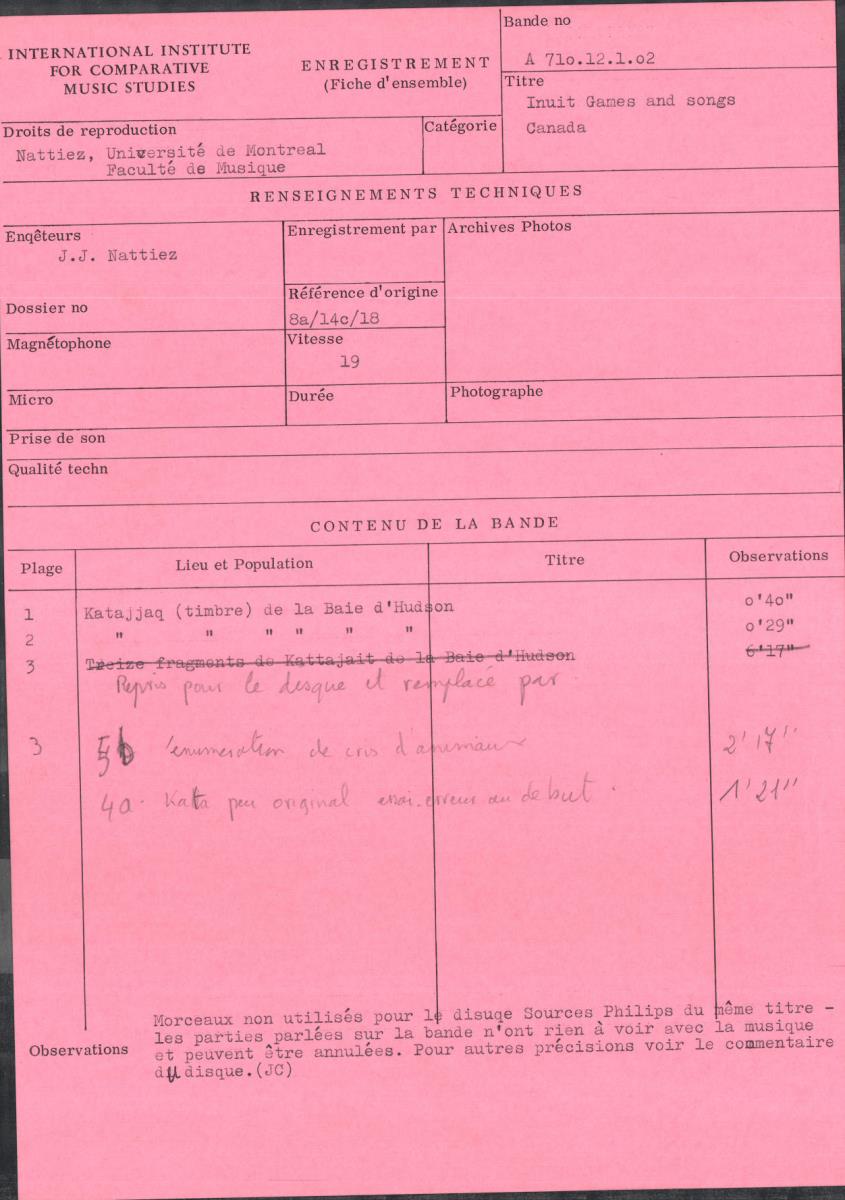 INTERNATIONAL INSTITUTE
FOR COMPARATIVE
MUSIC STUDIES
ENREGISTREMENT
(Fiche d'ensemble)
Bande no
A 71o.12.1.o2
Titre
Inuit Games and songs
Canada
Droits de reproduction
Nattiez, Université de Montreal
Faculté de Musique
Catégorie
RENSEIGNEMENTS TECHNIQUES
Enqêteurs
J.J. Nattiez
Dossier no
Enregistrement par
Référence d'origine
8a/14c/18
Archives Photos
Magnétophone
Vitesse
19
Micro
Durée
Photographe
Prise de son
Qualité techn
CONTENU DE LA BANDE
Plage Lieu et Population Titre Observations
1 Katajjaq (timbre) de la Baie d'Hudson o'4o"
2 " " " " " " o'29"
3 Treize fragments de Kattajait de la Baie d'Hudson 6'17"
Repris pour le disque et remplacé par
3 5b l'enumeration de cris d'animaux 2'17''
4a. Kata peu original essai.erreur au debut. 1'21''
Observations
Morceaux non utilisés pour le disuqe Sources Philips du même titre -
les parties parlées sur la bande n'ont rien à voir avec la musique
et peuvent être annulées. Pour autres précisions voir le commentaire
du disque.(JC)